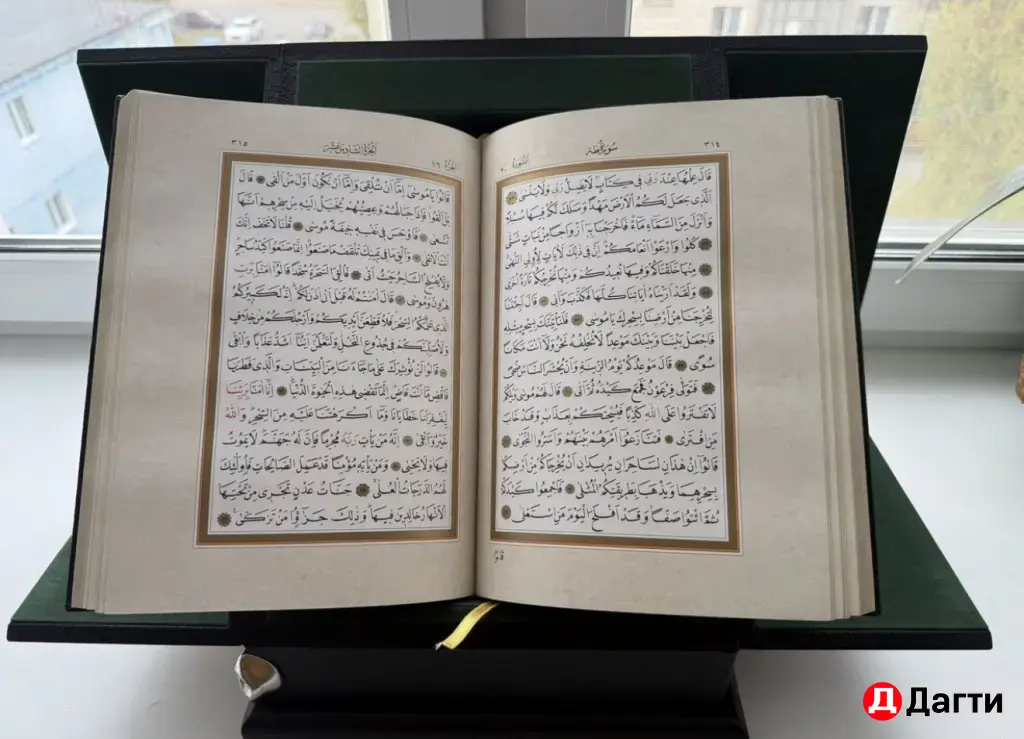 ٣١٤
سُورَةُ طٰهٰ
السُّورَة ٢٠
قَالَ عِلْمُهَا عِنْدَ رَبّ۪ي ف۪ي كِتَابٍۚ لَا يَضِلُّ رَبّ۪ي وَلَا يَنْسٰى
اَلَّذ۪ي جَعَلَ لَكُمُ الْاَرْضَ مَهْدًا وَسَلَكَ لَكُمْ ف۪يهَا سُبُلًا
وَاَنْزَلَ مِنَ السَّمَٓاءِ مَٓاءًۜ فَاَخْرَجْنَا بِه۪ٓ اَزْوَاجًا مِنْ نَبَاتٍ شَتّٰى
كُلُوا وَارْعَوْا اَنْعَامَكُمْۜ اِنَّ ف۪ي ذٰلِكَ لَاٰيَاتٍ لِاُو۬لِي النُّهٰى
مِنْهَا خَلَقْنَاكُمْ وَف۪يهَا نُع۪يدُكُمْ وَمِنْهَا نُخْرِجُكُمْ تَارَةً اُخْرٰى
وَلَقَدْ اَرَيْنَاهُ اٰيَاتِنَا كُلَّهَا فَكَذَّبَ وَاَبٰى قَالَ اَجِئْتَنَا
لِتُخْرِجَنَا مِنْ اَرْضِنَا بِسِحْرِكَ يَا مُوسٰى فَلَنَأْتِيَنَّكَ بِسِحْرٍ مِثْلِه۪
فَاجْعَلْ بَيْنَنَا وَبَيْنَكَ مَوْعِدًا لَا نُخْلِفُهُ نَحْنُ وَلَٓا اَنْتَ مَكَانًا
سُوًى قَالَ مَوْعِدُكُمْ يَوْمُ الزّ۪ينَةِ وَاَنْ يُحْشَرَ النَّاسُ ضُحًى
فَتَوَلّٰى فِرْعَوْنُ فَجَمَعَ كَيْدَهُ ثُمَّ اَتٰى قَالَ لَهُمْ مُوسٰى وَيْلَكُمْ
لَا تَفْتَرُوا عَلَى اللّٰهِ كَذِبًا فَيُسْحِتَكُمْ بِعَذَابٍۚ وَقَدْ خَابَ
مَنِ افْتَرٰى فَتَنَازَعُٓوا اَمْرَهُمْ بَيْنَهُمْ وَاَسَرُّوا النَّجْوٰى
قَالُٓوا اِنْ هٰذَانِ لَسَاحِرَانِ يُر۪يدَانِ اَنْ يُخْرِجَاكُمْ مِنْ اَرْضِكُمْ
بِسِحْرِهِمَا وَيَذْهَبَا بِطَر۪يقَتِكُمُ الْمُثْلٰى فَاَجْمِعُوا كَيْدَكُمْ
ثُمَّ ائْتُوا صَفًّاۚ وَقَدْ اَفْلَحَ الْيَوْمَ مَنِ اسْتَعْلٰى
قَالُوا
الجُزْء ١٦
اَلْجُزْءُ السَّادِسَ عَشَرَ
٣١٥
قَالُوا يَا مُوسٰٓى اِمَّٓا اَنْ تُلْقِيَ وَاِمَّٓا اَنْ نَكُونَ اَوَّلَ مَنْ اَلْقٰى قَالَ
بَلْ اَلْقُواۚ فَاِذَا حِبَالُهُمْ وَعِصِيُّهُمْ يُخَيَّلُ اِلَيْهِ مِنْ سِحْرِهِمْ اَنَّهَا
تَسْعٰى فَاَوْجَسَ ف۪ي نَفْسِه۪ خ۪يفَةً مُوسٰى قُلْنَا لَا تَخَفْ اِنَّكَ
اَنْتَ الْاَعْلٰى وَاَلْقِ مَا ف۪ي يَم۪ينِكَ تَلْقَفْ مَا صَنَعُواۜ اِنَّمَا صَنَعُوا كَيْدُ سَاحِرٍۜ
وَلَا يُفْلِحُ السَّاحِرُ حَيْثُ اَتٰى فَاُلْقِيَ السَّحَرَةُ سُجَّدًا قَالُٓوا اٰمَنَّا بِرَبِّ
هٰرُونَ وَمُوسٰى قَالَ اٰمَنْتُمْ لَهُ قَبْلَ اَنْ اٰذَنَ لَكُمْۜ اِنَّهُ لَكَب۪يرُكُمُ
الَّذ۪ي عَلَّمَكُمُ السِّحْرَۚ فَلَاُقَطِّعَنَّ اَيْدِيَكُمْ وَاَرْجُلَكُمْ مِنْ خِلَافٍ
وَلَاُصَلِّبَنَّكُمْ ف۪ي جُذُوعِ النَّخْلِۘ وَلَتَعْلَمُنَّ اَيُّنَٓا اَشَدُّ عَذَابًا وَاَبْقٰى
قَالُوا لَنْ نُؤْثِرَكَ عَلٰى مَا جَٓاءَنَا مِنَ الْبَيِّنَاتِ وَالَّذ۪ي فَطَرَنَا
فَاقْضِ مَٓا اَنْتَ قَاضٍۜ اِنَّمَا تَقْض۪ي هٰذِهِ الْحَيٰوةَ الدُّنْيَا اِنَّٓا اٰمَنَّا بِرَبِّنَا
لِيَغْفِرَ لَنَا خَطَايَانَا وَمَٓا اَكْرَهْتَنَا عَلَيْهِ مِنَ السِّحْرِۜ وَاللّٰهُ
خَيْرٌ وَاَبْقٰى اِنَّهُ مَنْ يَأْتِ رَبَّهُ مُجْرِمًا فَاِنَّ لَهُ جَهَنَّمَۜ لَا يَمُوتُ
ف۪يهَا وَلَا يَحْيٰى وَمَنْ يَأْتِه۪ مُؤْمِنًا قَدْ عَمِلَ الصَّالِحَاتِ فَاُو۬لٰٓئِكَ
لَهُمُ الدَّرَجَاتُ الْعُلٰى جَنَّاتُ عَدْنٍ تَجْر۪ي مِنْ تَحْتِهَا
الْاَنْهَارُ خَالِد۪ينَ ف۪يهَاۜ وَذٰلِكَ جَزٰٓؤُا مَنْ تَزَكّٰى
Дагти